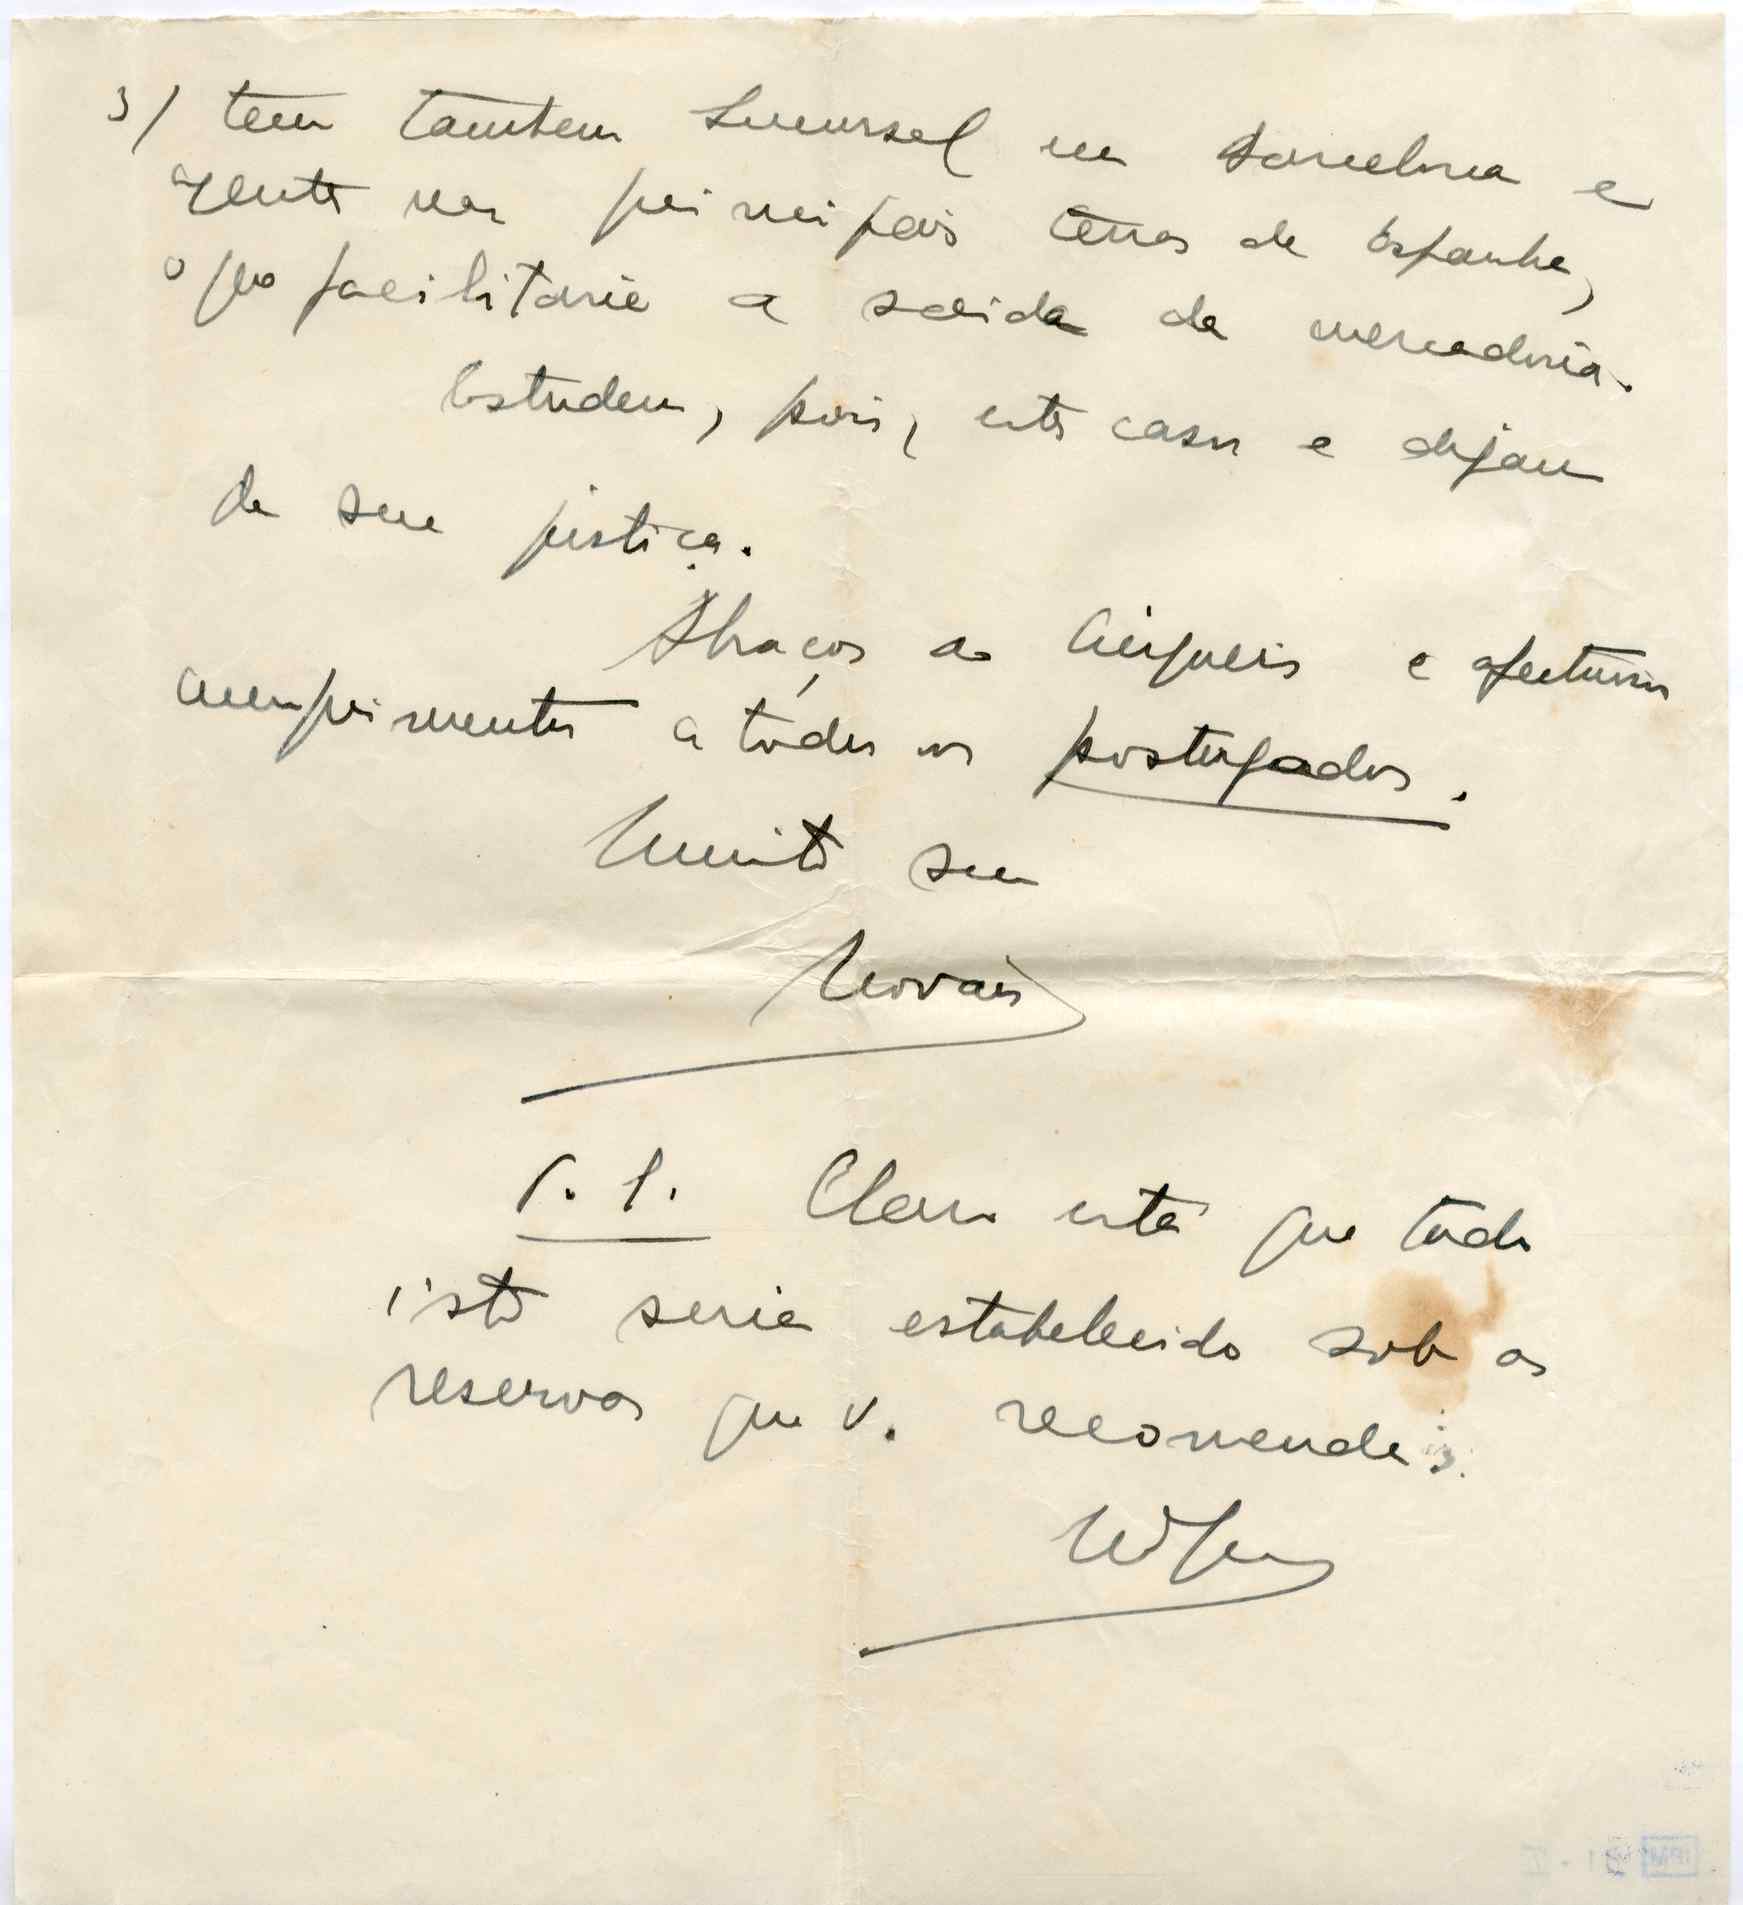 3/ tem tambem Sucursal em Barcelona e
agentes nas principais terras de Espanha,
o que facilitaria a saida da mercadoria.
Estudem, pois, este caso e digam
de sua justiça.
Abraços ao e afectuosos
cumprimentos a tôdos os postergados.
Muito seu
Novais
P. S. Claro está que tudo
isto seria estabelecido sob as
reservas que V. recomenda